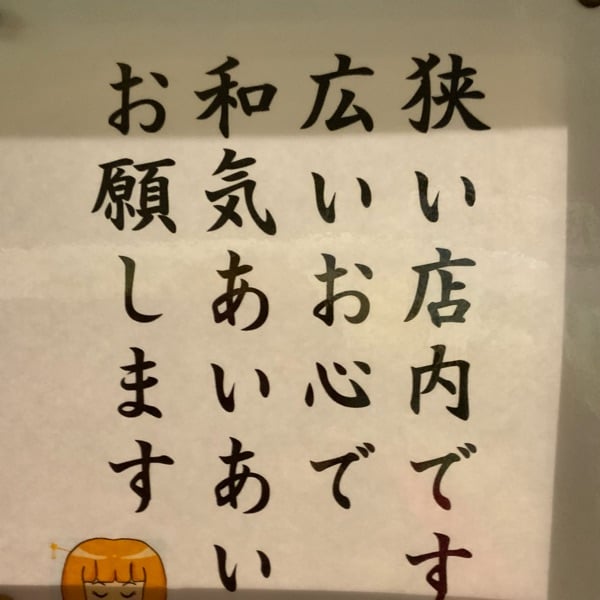 狭い店内です
広いお心で
和気あいあい
お願します